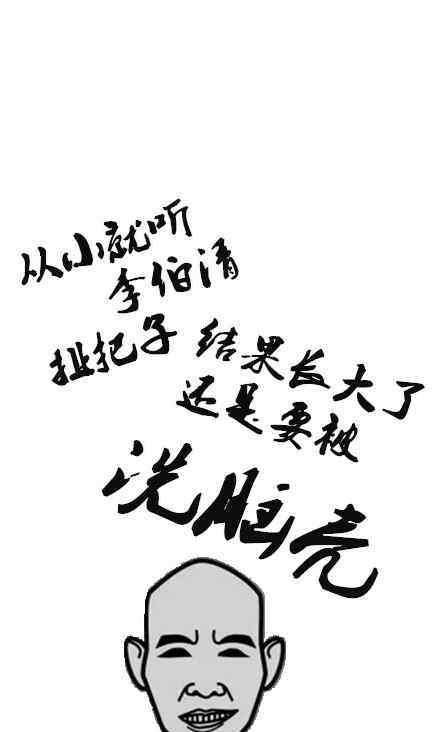 从小就听
李伯清
扯把子
结果长大了
还是要被
洗脑壳